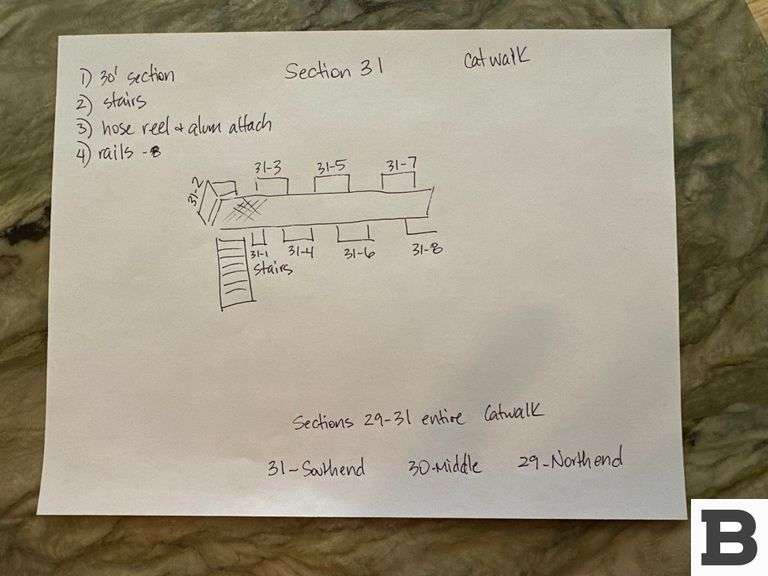 Section 31
Catwalk
1) 30' section
2) stairs
3) hose reel + alum attach
4) rails - 8
31-2
31-3
31-5
31-7
31-1
stairs
31-4
31-6
31-8
Sections 29-31 entire Catwalk
31-Southend 30-Middle 29-Northend
B